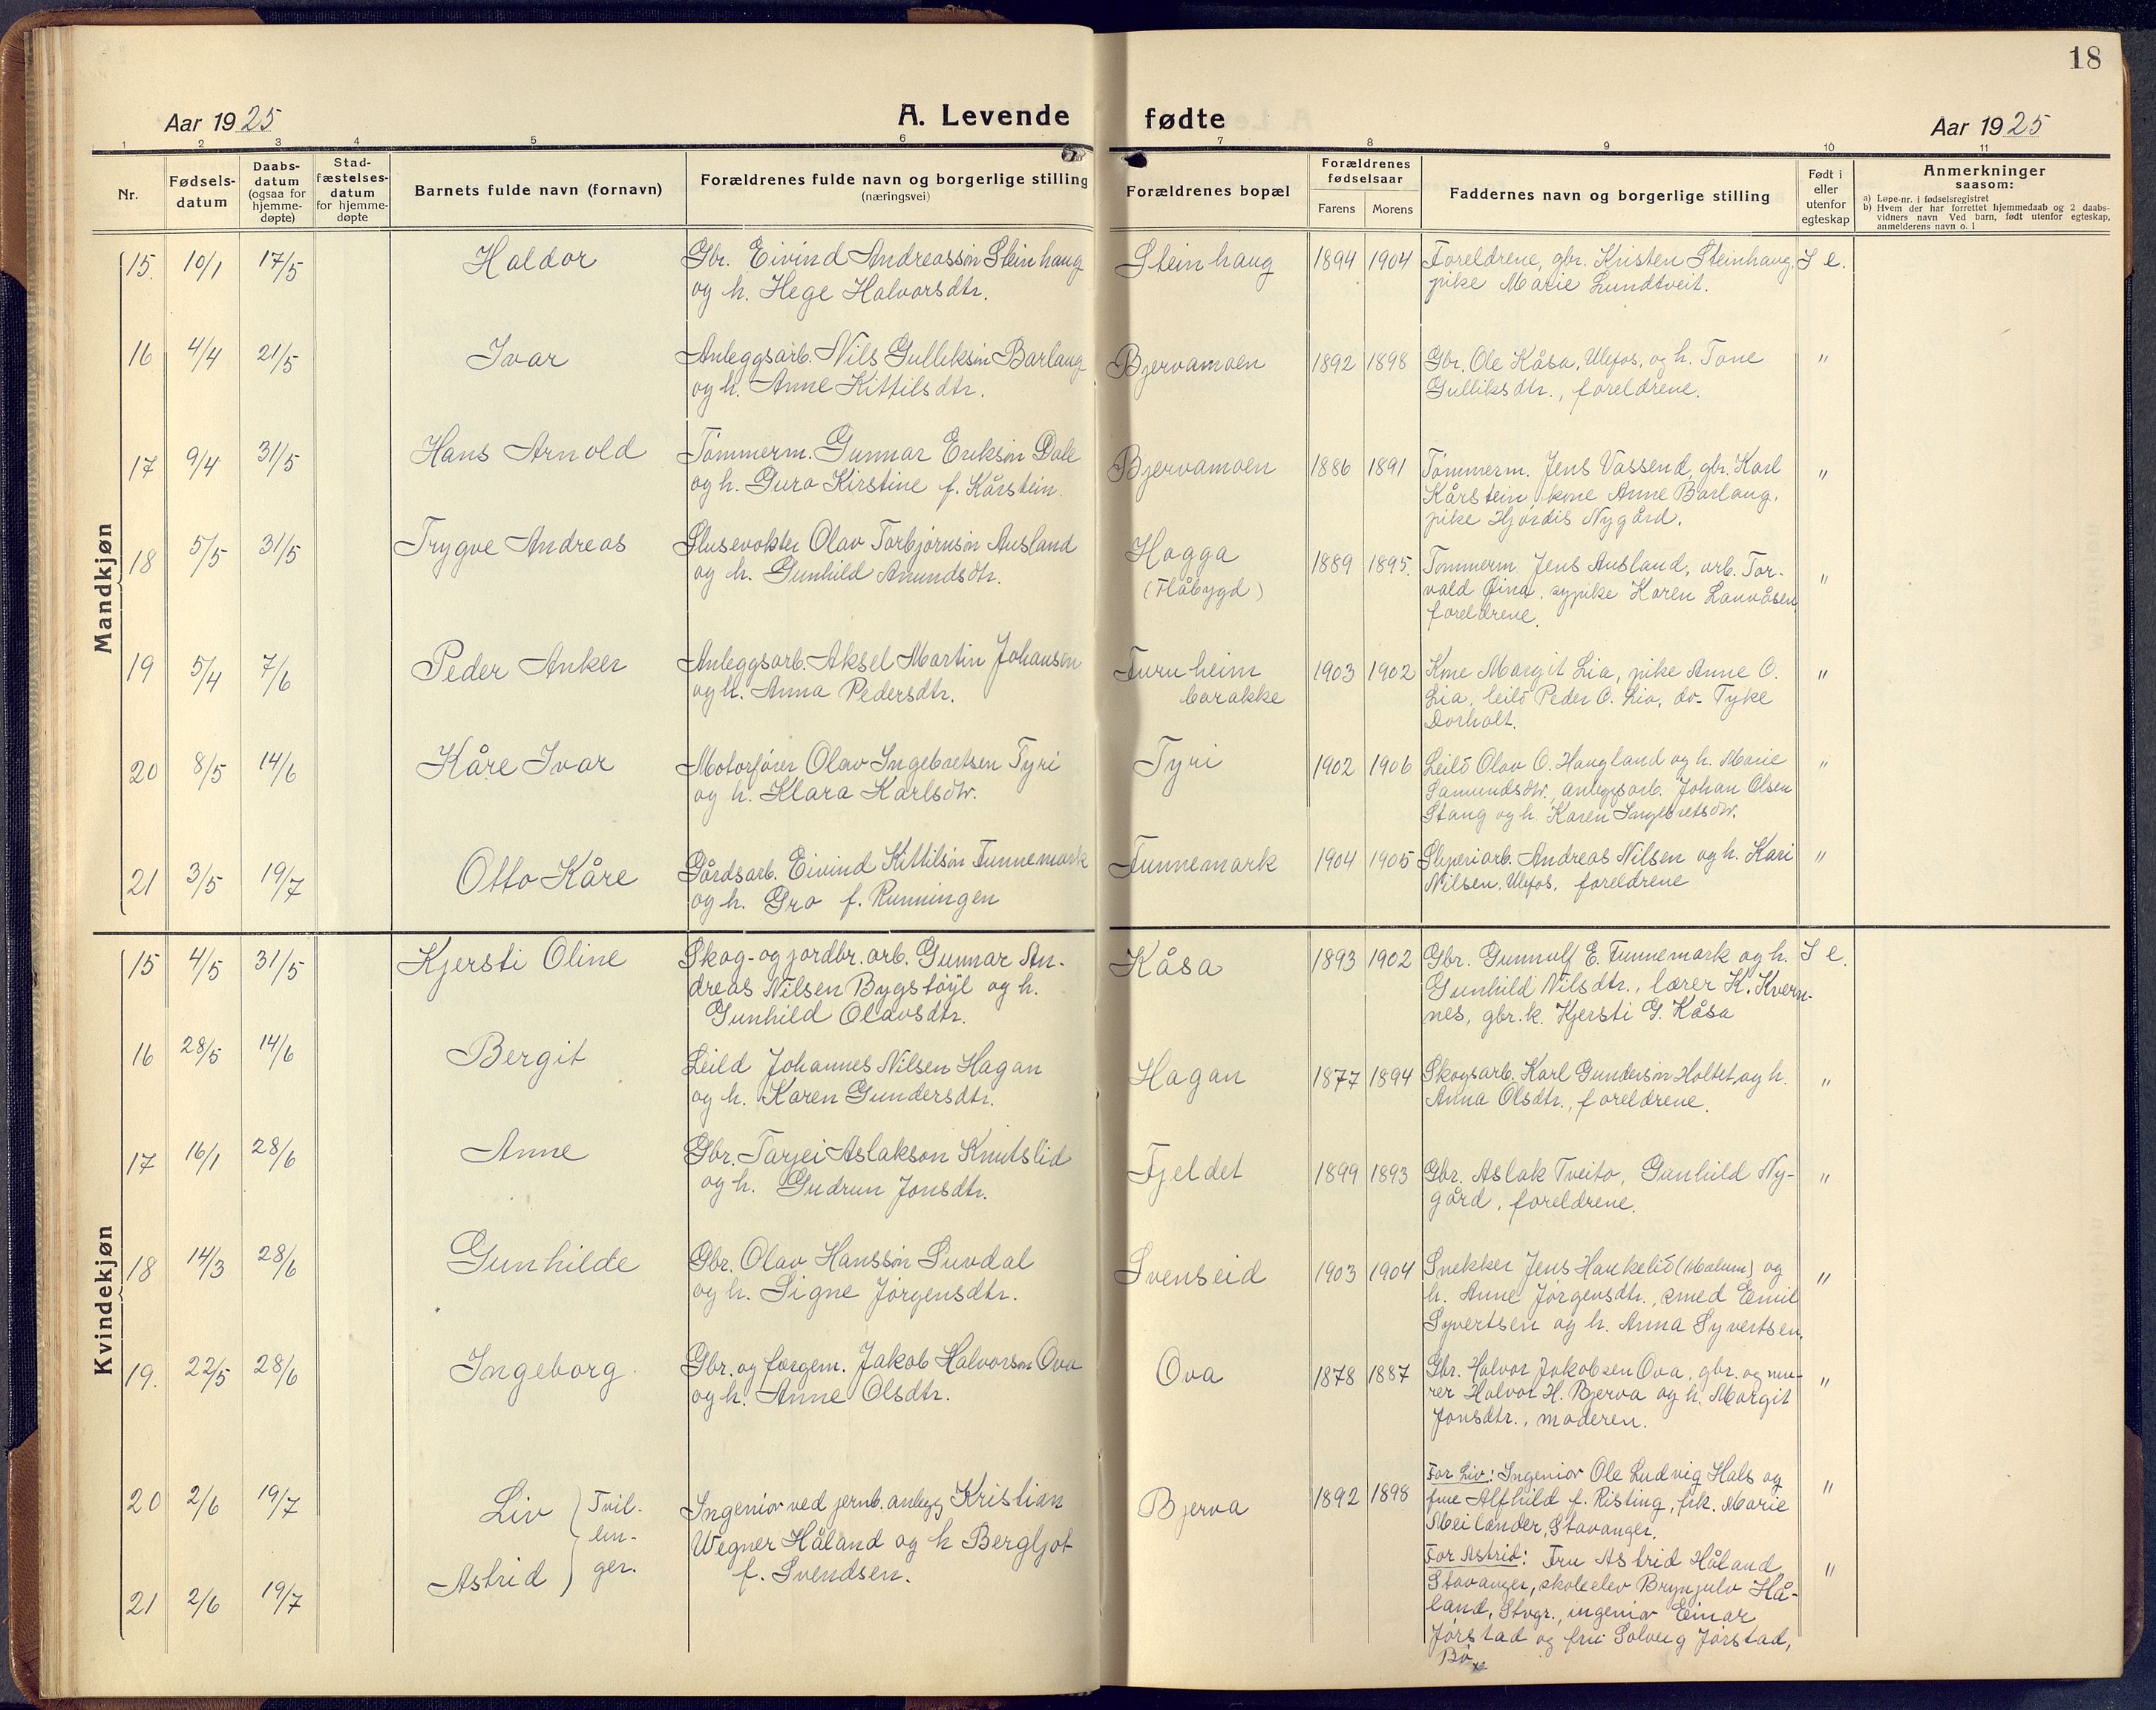 18
Aar 1925
A. Levende fødte
Aar 1925
1 2 3 4 5 6 7 8 9 10 11
Nr.
Fødsels-
datum
Daabs-
datum
(ogsaa for
hjemme-
døpte)
Stad-
fæstelses-
datum
for hjemme-
døpte
Barnets fulde navn (fornavn)
Forældrenes fulde navn og borgerlige stilling
(næringsvei)
Forældrenes bopæl
Forældrenes
fødselsaar
Farens Morens
Faddernes navn og borgerlige stilling
Født i
eller
utenfor
egteskap
Anmerkninger
saasom:
a) Løpe-nr. i fødselsregistret
b) Hvem der har forrettet hjemmedaab og 2 daabs-
vidners navn Ved barn, født utenfor egteskap,
anmelderens navn o. l
Mandkjøn
15. 10/1 17/5 Haldor Gbr. Eivind Andreassön Steinhaug Steinhaug 1894 1904 Foreldrene, gbr. Kristen Steinhaug, I e.
og h. Hege Halvorsdtr. pike Marie Lundtveit.
16 4/4 21/5 Ivar Anleggsarb. Nils Gulliksön Barlaug Bjervamoen 1892 1898 Gbr. Ole Kåsa, Ulefos, og h. Tone "
og h. Anne Kittilsdtr. Gulliksdtr., foreldrene.
17 9/4 31/5 Hans Arnold Tömmerm. Gunnar Eriksön Dale Bjervamoen 1886 1891 Tömmerm. Jens Vassend, gbr. Karl "
og h. Guro Kirstine f. Kårstein. Kårstein, kone Anne Barlaug,
pike Hjördis Nygård.
18 5/5 31/5 Trygve Andreas Slusevokter Olav Torbjörnsön Ausland Hogga 1889 1895. Tömmerm Jens Ausland, arb. Tor- "
og h. Gunhild Anundsdtr. (Flåbygd) vald Øina, sypike Karen Lauvåsen,
foreldrene.
19 5/4 7/6 Peder Anker Anleggsarb. Aksel Martin Johansen Furuheim 1903 1902 Kone Margit Lia, pike Anne O. "
og h. Anna Pedersdtr. barakke Lia, leild Peder O. Lia, do- Tyke
Dorholt.
20 8/5 14/6 Kåre Ivar Motorförer Olav Ingebretsen Tyri Tyri 1902 1906 Leild Olav O. Haugland og h. Marie "
og h. Klara Karlsdtr. Samundsdtr., anleggsarb. Johan Olsen
Stang og h. Karen Ingebretsdtr.
21 3/5 19/7 Otto Kåre Gårdsarb. Eivind Kittilsön Funnemark Funnemark 1904 1905 Sliperiarb. Andreas Nilsen og h. Kari "
og h. Gro f. Runningen Nilsen, Ulefos, foreldrene
Kvindekjøn
15 4/5 31/5 Kjersti Oline Skog- og jordbr. arb. Gunnar An- Kåsa 1893 1902 Gbr. Gunnulf E. Funnemark og h. I e.
dreas Nilsen Bygstöyl og h. Gunhild Nilsdtr., lærer K. Kvern-
Gunhild Olavsdtr. nes, gbr. k. Kjersti G. Kåsa
16 28/5 14/6 Bergit Leild Johannes Nilsen Hagan Hagan 1877 1894 Skogsarb. Karl Gundersön Holtet og h. "
og h. Karen Gundersdtr. Anna Olsdtr., foreldrene.
17 16/1 28/6 Anne Gbr. Tarjei Aslakson Knutslid Fjeldet 1899 1893 Gbr. Aslak Tveito, Gunhild Ny- "
og h. Gudrun Jonsdtr. gård, foreldrene.
18 14/3 28/6 Gunhilde Gbr. Olav Hanssön Suvdal Svenseid 1903 1904 Snekker Jens Haukelid (Mælum) og "
og h. Signe Jörgensdtr. h. Anne Jörgensdtr., smed Emil
Syvertsen og h. Anna Syvertsen.
19. 22/5 28/6 Ingeborg. Gbr. og færgem. Jakob Halvorsön Ova Ova 1878 1887 Gbr. Halvor Jakobsen Ova, gbr. og mu- "
og h. Anne Olsdtr. rer Halvor H. Bjerva og h. Margit
Jonsdtr., moderen.
20 2/6 19/7 Liv Tvil- Ingeniör ved jernb. anlegg Kristian Bjerva 1892 1898 For Liv: Ingeniör Ole Ludvig Hals og "
lin- Wegner Håland og h Bergljot frue Alfhild f. Risting, frk. Marie
Meilænder, Stavanger.
21 2/6 19/7 Astrid ger. f. Svendsen. For Astrid: Fru Astrid Håland, "
Stavanger, skoleelev Brynjulv Hå-
land, Stvgr., ingeniör Einar
Jörstad og fru Solveig Jörstad,
Bö